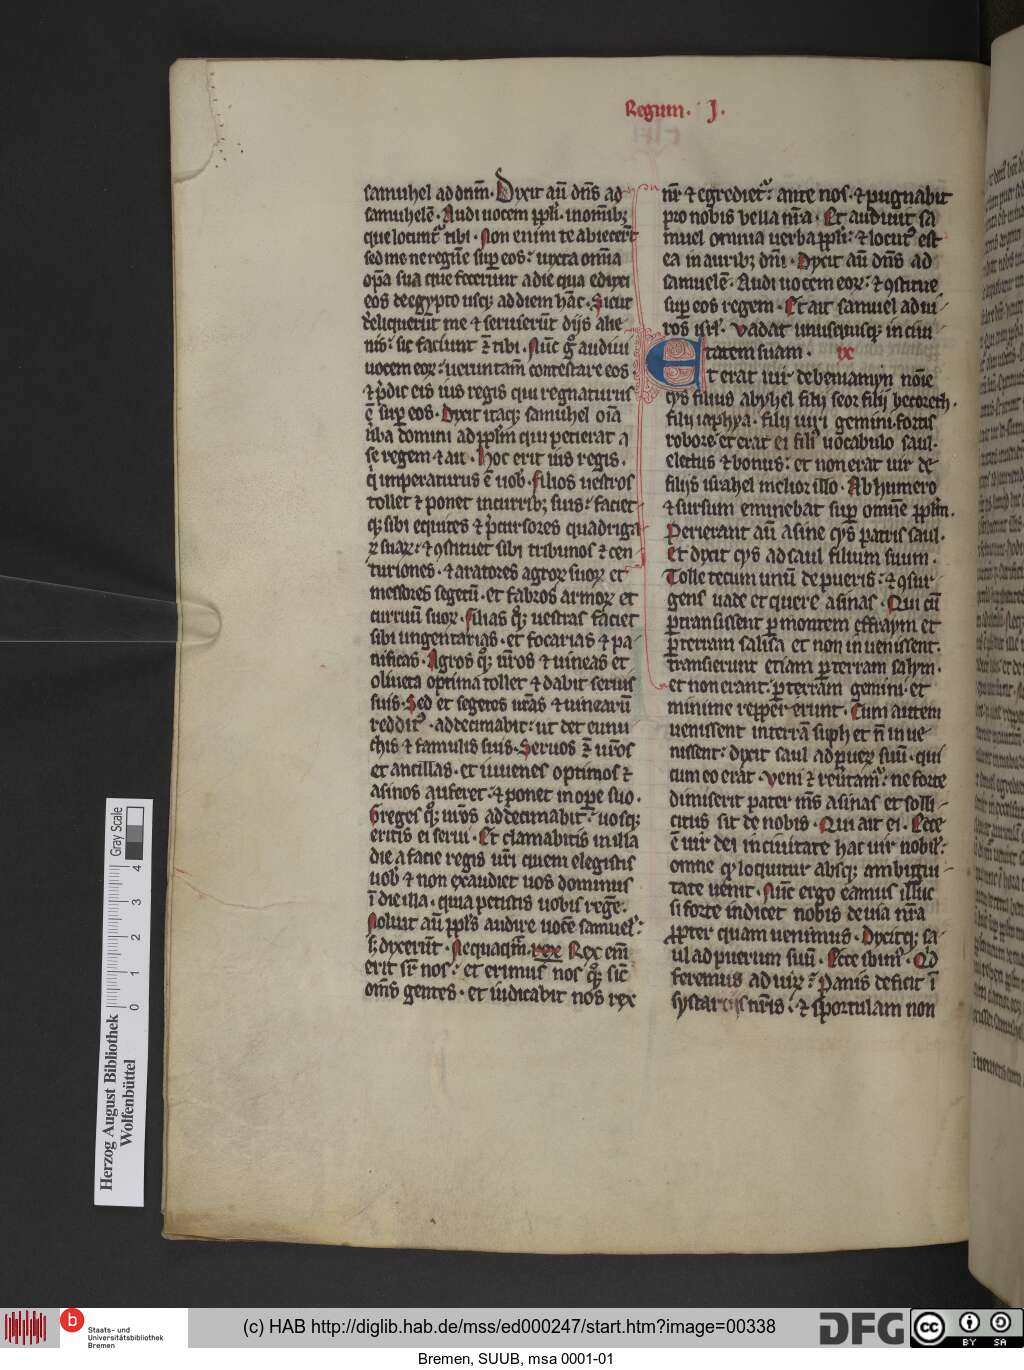 Regum · J ·
samuhel ad dn̄m · Dixit aū dn̄s ad
samuhelē · Audi uocem ppl̄i · in om̄ib;
que locunt᷑ tibi · Non enim te abiecer̄t
sed me ne regnē suꝑ eos : iuxta om̄ia
opa sua que fecerunt a die qua eduxi
eos de egypto usq; ad diem hāc · Sicut
deliquerūt me ⁊ seruierūt dijs alie
nis : sic faciunt ⁊ tibi · Nūc gͦ audi uo
uocem eoꝝ : ueruntam̄ contestare eos
⁊ p̄dic eis ius regis qui regnaturus
ē suꝑ eos · Dixit itaq; samuhel oīa
ūba domini ad pplm̄ qui petierat a
se regem ⁊ ait · Hoc erit ius regis ·
qͥ imperaturus ē uob̄ · filios uestros
tollet ⁊ ponet in currib; suis : faciet
q; sibi equites ⁊ p̄cursores quadriga
ꝝ suaꝝ : ⁊ ꝯstituet sibi tribunos ⁊ cen
turiones · ⁊ aratores agroꝝ suoꝝ et
messores segetū · et fabros armoꝝ et
curruū suoꝝ · filias qͦ; uestras faciet
sibi ungentarias · et focarias ⁊ pa
nificas · Agros qͦ; ur̄os ⁊ uineas et
oliueta optima tollet ⁊ dabit seruis
suis · Sed et segetes ur̄as ⁊ uinearū
reddit᷑ · addecimabit : ut det eunu
chis ⁊ famulis suis · Seruos ⁊ ur̄os
et ancillas · et iuuenes optimos ⁊
asinos auferet : ⁊ ponet in oꝑe suo ·
Greges qͦ; ur̄os addecimabit : uosq;
eritis ei serui · Et clamabitis in illa
die a facie regis ur̄i quem elegistis
uob̄ ⁊ non exaudiet uos dominus
ī die illa · quia petistis uobis regē ·
Noluit aū ppl̄s audire uocē samuel᷑ :
s; dixerūt · Nequaqm̄ · rex Rex enī
erit sr̄ nos : et erimus nos qͦ; sic̄
om̄s gentes · et iudicabit nos rex
nr̄ ⁊ egrediet᷑ ante nos · ⁊ pugnabit
pro nobis bella nr̄a · Et audiuit sa
muel omnia uerba ppl̄i : ⁊ locut᷑ est
ea in aurib; dn̄i · Dixit aū dn̄s ad
samuelē · Audi uocem eoꝝ : ⁊ ꝯstitue
suꝑ eos regem · Et ait samuel ad ui
ros isr̄l · Vadat unusquisq; in ciui
tatem suam · ix
Et erat uir de beniamyn nōie
cys filius abyhel filij seor filij becoreth ·
filij iaphya · filij uiri gemini · fortis
robore · et erat ei fili᷑ uocabulo saul ·
electus ⁊ bonus : et non erat uir de
filijs israhel melior illo · Ab humero
⁊ sursum eminebat suꝑ omnē pplm̄ ·
Perierant aū asine cys patris saul ·
Et dixit cys ad saul filium suum ·
Tolle tecum unū de pueris : ⁊ ꝯsur
gens uade et quere asinas · Qui cū
ꝑtransissent ꝑ montem effraym et
ꝑ terram salisa et non inuenissent ·
transierunt etiam ꝑ terram salym ·
et non erant : ꝑ terram gemini · et
minime repperierunt · Cum autem
uenissent in terrā suph et n̄ inue
nissent : dixit saul ad pueꝝ suū · qui
cum eo erat · Veni ⁊ reūtam᷑ : ne forte
dimiserit pater m̄s asinas et solli
citus sit de nobis · Qui ait ei · Ecce
ē uir dei in ciuitate hac uir nobil᷑ :
omne qͩ loquitur absq; ambigui
tate uenit · Nūc ergo eamus illuc
si forte indicet nobis de uia nr̄a
ꝓpter quam uenimus · Dixitq; sa
ul ad puerum suū · Ecce ibim᷑ · Qͥd
feremus ad uiꝝ : Panis deficit ī
systarcijs nr̄is : ⁊ sportulam non
Gray Scale
0 1 2 3 4
Herzog August Bibliothek
Wolfenbüttel
b
Staats- und
Universitätsbibliothek
Bremen
(c) HAB http://diglib.hab.de/mss/ed000247/start.htm?image=00338
DFG
cc
BY SA
Bremen, SUUB, msa 0001-01